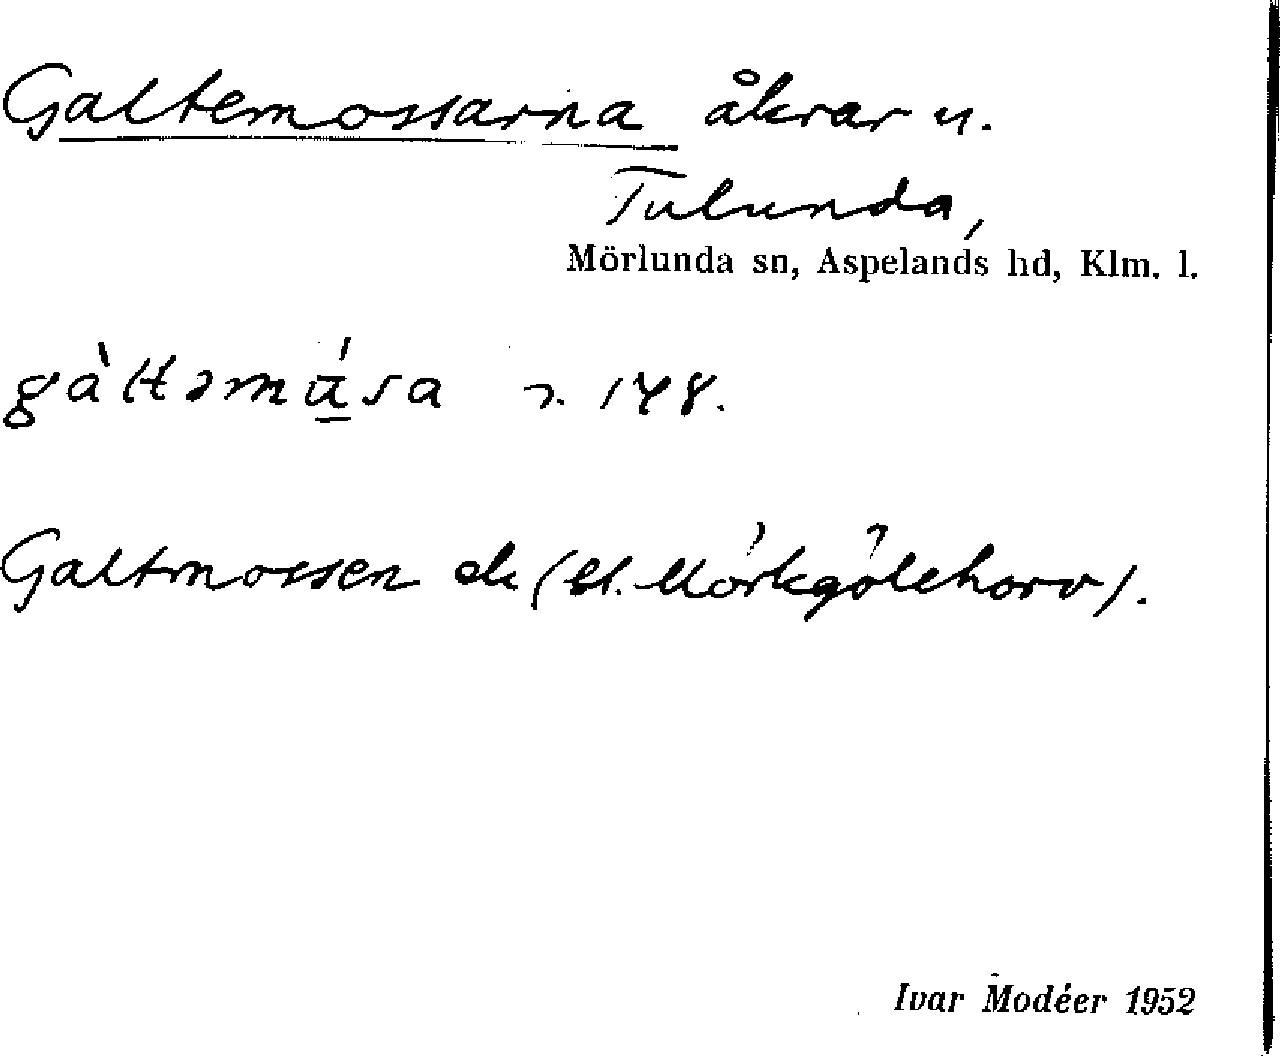 Galtemossarna åkrar u.
Tulunda,
Mörlunda sn, Aspelands hd, Klm. l.
gàltəmú̲sa n. 148.
Galtmossen ek (bl. Mörkgölehorv).
Ivar Modéer 1952